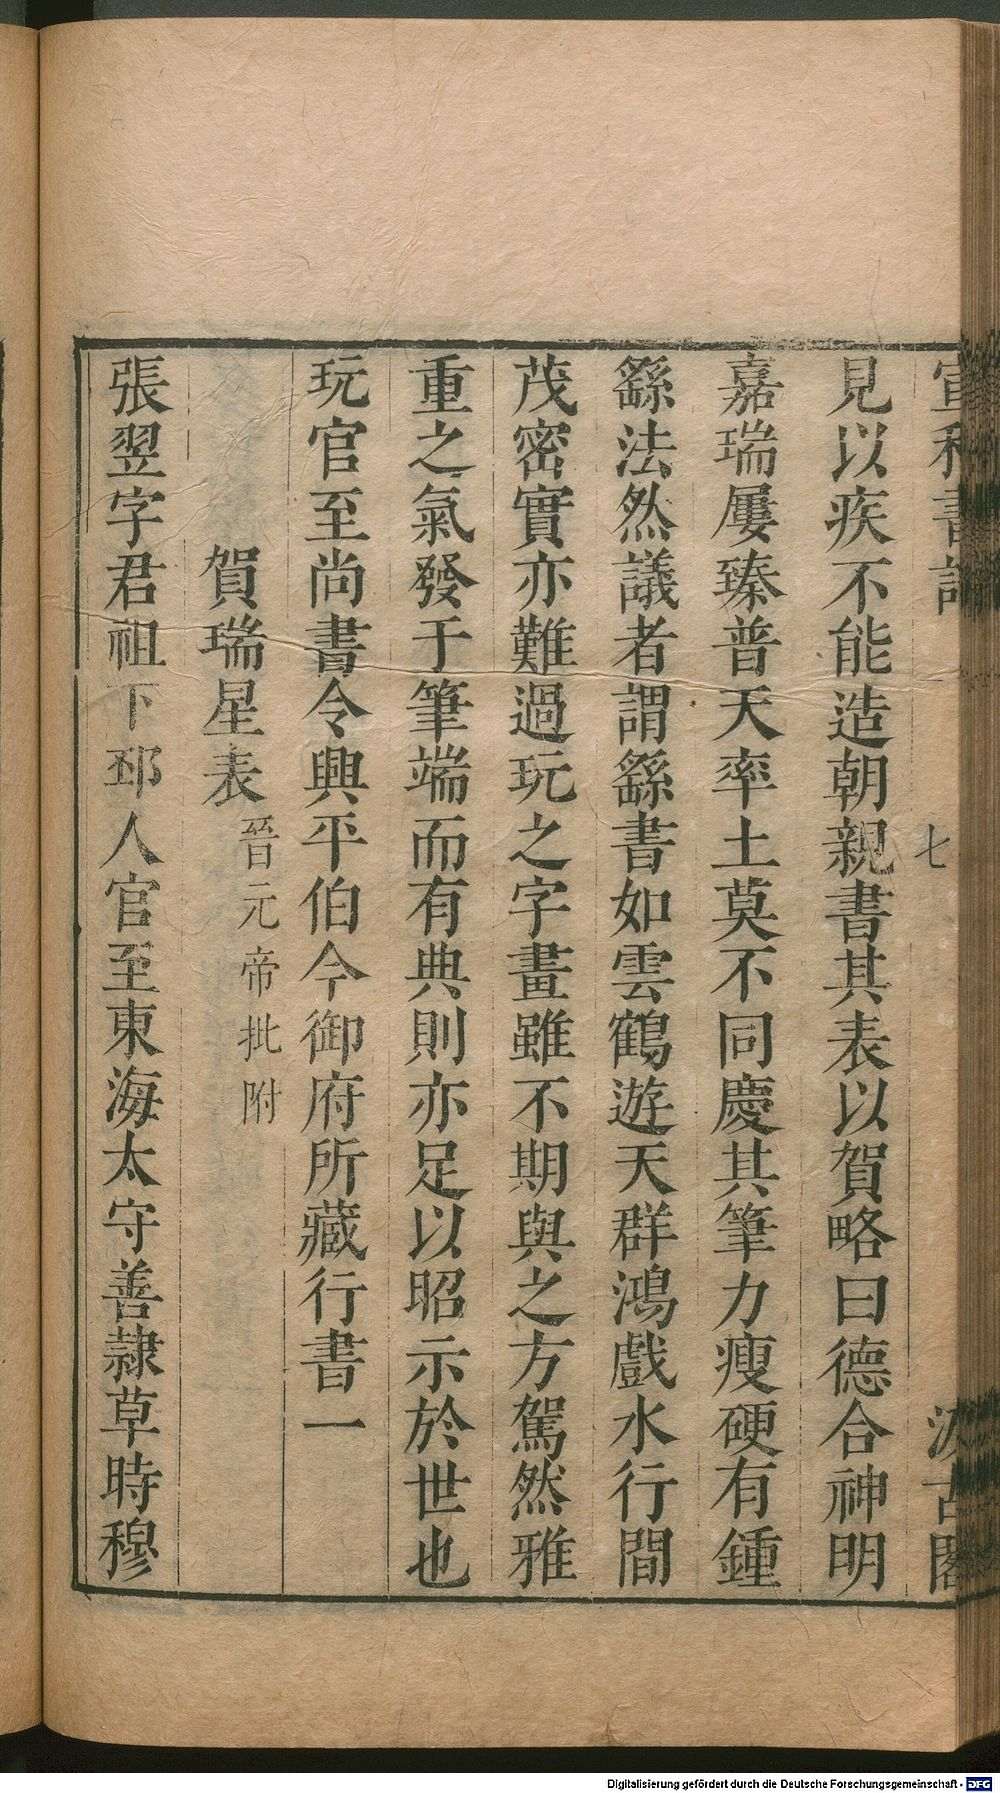 見以疾不能造朝親書其表以賀略曰德合神明
嘉瑞屢臻普天率土莫不同慶其筆力瘦硬有鍾
繇法然議者謂繇書如雲鶴遊天群鴻戲水行間
茂密實亦難過玩之字畫雖不期與之方駕然雅
重之氣發于筆端而有典則亦足以昭示於世也
玩官至尚書令興平伯今御府所藏行書一
賀瑞星表晉元帝批附
張翌字君祖下邳人官至東海太守善隷草時穆
七
Digitalisierung gefördert durch die Deutsche Forschungsgemeinschaft - DFG